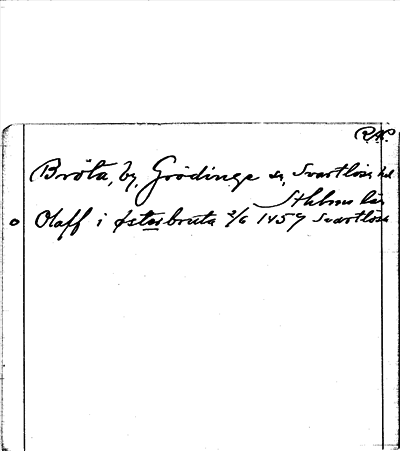 RAP.
Bröta, by, Grödinge sn, Svartlösa hd
Sthlms län
Olaff i østerbruta 2/6 1459 Svartlösa